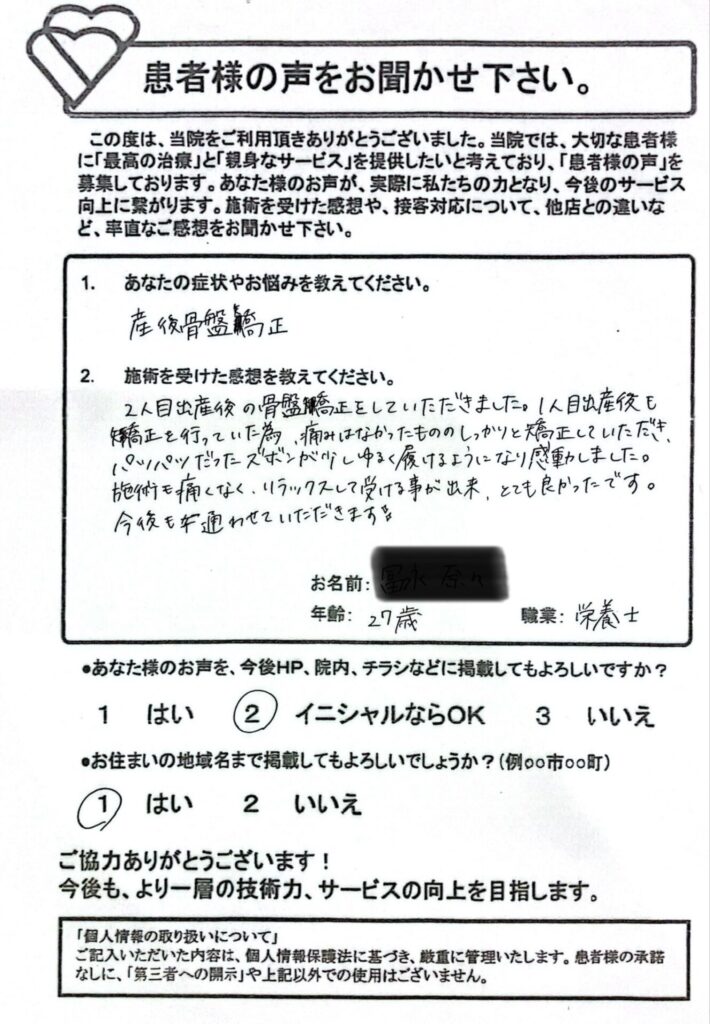 患者様の声をお聞かせ下さい。
この度は、当院をご利用頂きありがとうございました。当院では、大切な患者様
に「最高の治療」と「親身なサービス」を提供したいと考えており、「患者様の声」を
募集しております。あなた様のお声が、実際に私たちの力となり、今後のサービス
向上に繋がります。施術を受けた感想や、接客対応について、他店との違いな
ど、率直なご感想をお聞かせ下さい。
1. あなたの症状やお悩みを教えてください。
産後骨盤矯正
2. 施術を受けた感想を教えてください。
2人目出産後の骨盤矯正をしていただきました。1人目出産後も
矯正を行っていた為、痛みはなかったもののしっかりと矯正していただき、
パツパツだったズボンが少しゆるく履けるようになり感動しました。
施術も痛くなく、リラックスして受ける事が出来、とても良かったです。
今後も通わせていただきます
お名前:
年齢: 27歳 職業: 栄養士
●あなた様のお声を、今後HP、院内、チラシなどに掲載してもよろしいですか？
1 はい 2 イニシャルならOK 3 いいえ
●お住まいの地域名まで掲載してもよろしいでしょうか？(例○○市○○町)
1 はい 2 いいえ
ご協力ありがとうございます！
今後も、より一層の技術力、サービスの向上を目指します。
「個人情報の取り扱いについて」
ご記入いただいた内容は、個人情報保護法に基づき、厳重に管理いたします。患者様の承諾
なしに、「第三者への開示」や上記以外での使用はございません。